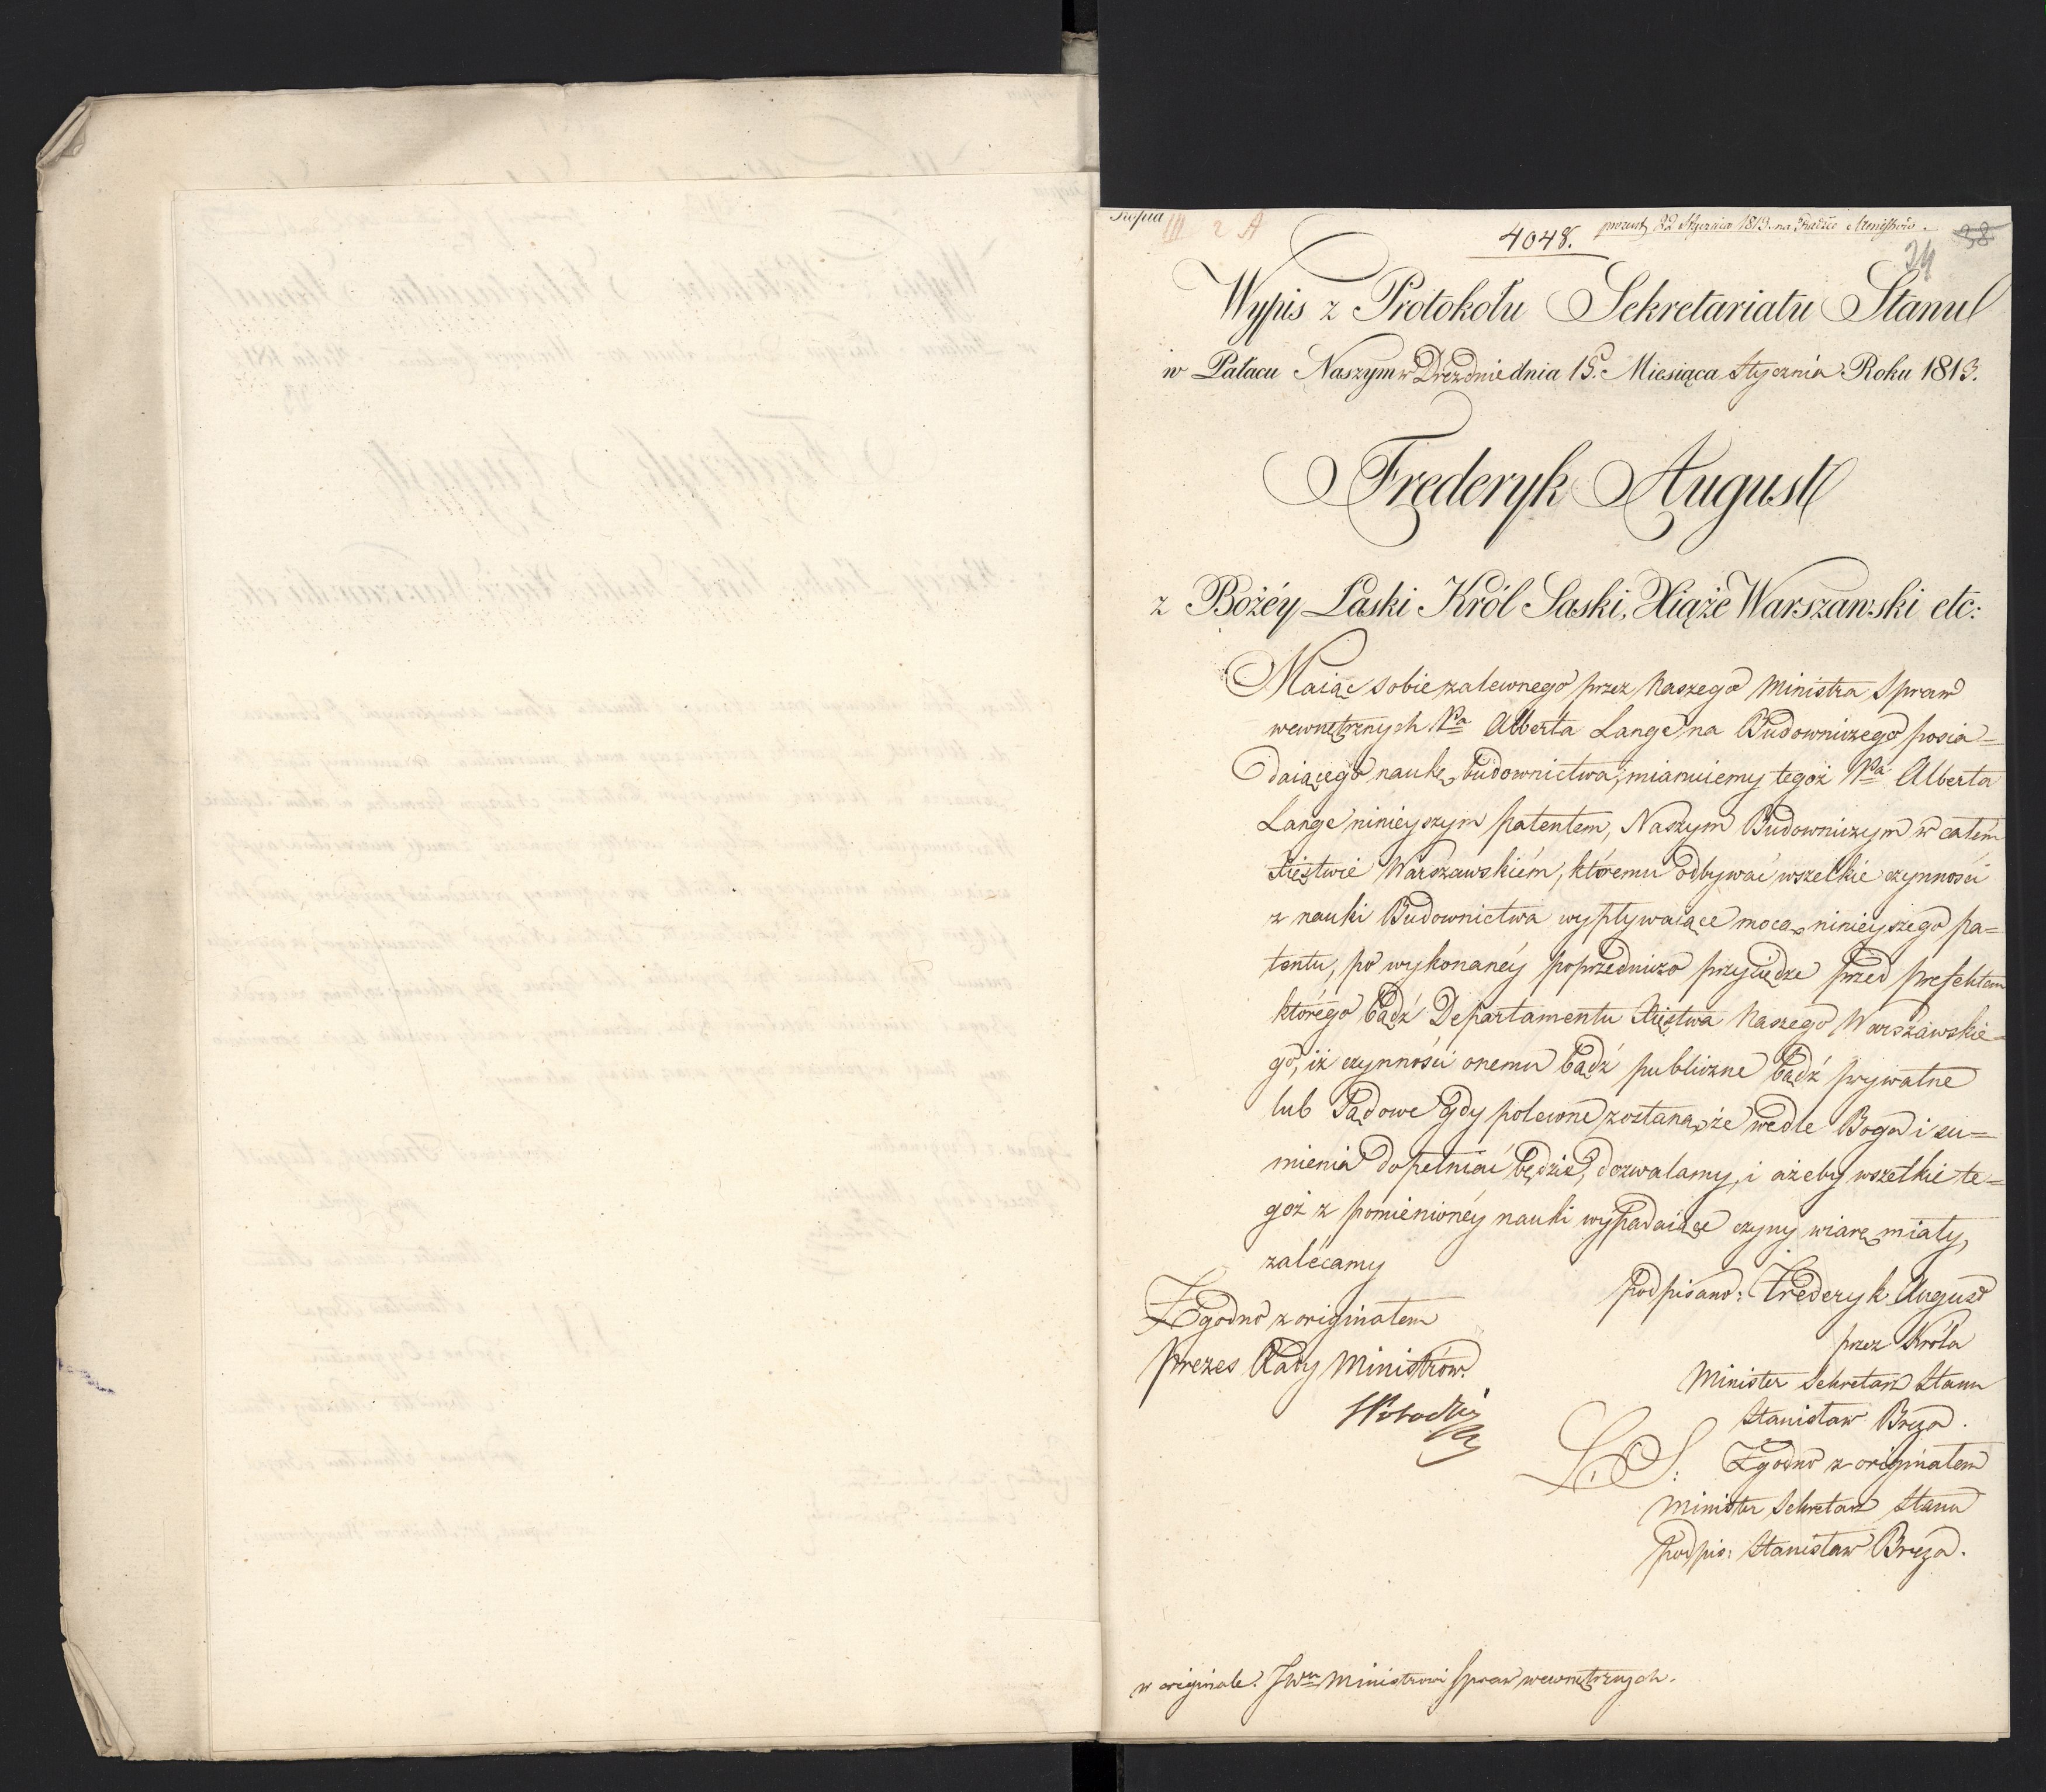 Kopia III 2 A
4048.
prezent. 22 Stycznia 1813. na Radzie Ministrów.
38
34
Wypis z Protokołu Sekretariatu Stanu
w Pałacu Naszym w Dreznie dnia 15. Miesiąca Stycznia Roku 1813.
Frederyk August
z Bożéy Łaski Król Saski, Xiąże Warszawski etc:
Maiąc sobie zaleconego przez Naszego Ministra Spraw
wewnętrznych Pa Alberta Lange, na Budowniczego posia=
daiącego naukę budownictwa; mianuiemy tegoż Pa Alberta
Lange ninieyszym patentem, Naszym Budowniczym w całém
Xięstwie Warszawskiém, któremu odbywać wszelkie czynności
z nauki Budownictwa wypływaiące mocą ninieyszego pa=
tentu, po wykonanéy poprzedniczo przysiędze przed Prefektem
którego bądź Departamentu Xięstwa Naszego Warszawskie=
go, iż czynności onemu bądź publiczne bądź prywatne
lub Sądowe gdy polecone zostaną, że wedle Boga i su=
mienia dopełniać będzie, dozwalamy, i ażeby wszelkie te=
goż z pomienionéy nauki wypadaiące czyny wiarę miały,
zalécamy
podpisano: Frederyk August
przez Króla
Minister Sekretarz Stanu
Stanisław Breza.
L. S. Zgodno z originałem
Minister Sekretarz Stanu
podpis: Stanisław Breza.
Zgodno z originałem
Prezes Rady Ministrów.
w originale. JWu Ministrowi Spraw wewnętrznych.